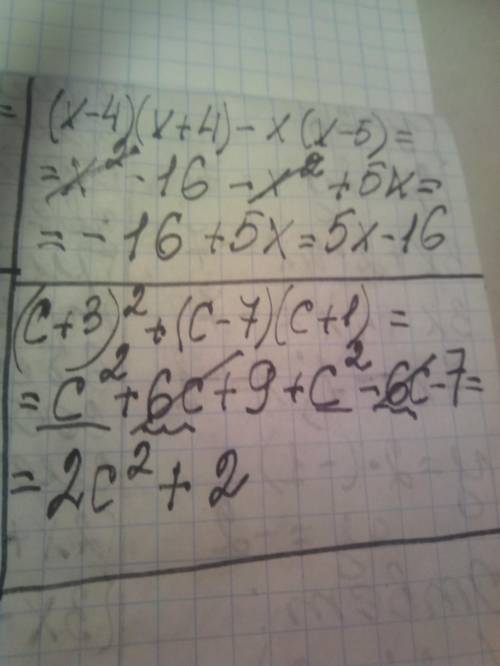 = (x-4)(x+4)-x(x-5)=
=x²-16-x²+5x=
=-16+5x=5x-16
(c+3)²+(c-7)(c+1)=
=c²+6c+9+c²-6c-7=
=2c²+2